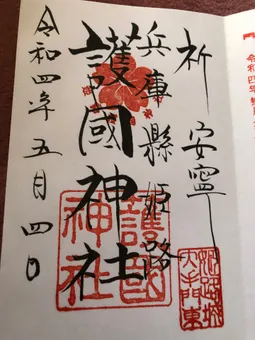 祈 安寧
兵庫縣姫路
護國神社
令和四年 五月四日
護國
神社
姫路城
大手門東